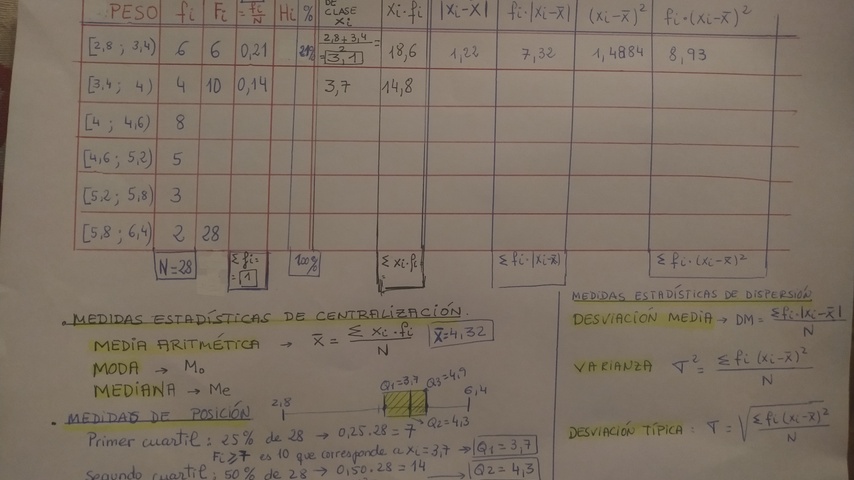 PESO fi Fi = fi/N Hi % DE CLASE xi xi·fi |xi-x̄| fi·|xi-x̄| (xi-x̄)² fi·(xi-x̄)²
[2,8 ; 3,4) 6 6 0,21 21% 2,8+3,4/2 = 3,1 18,6 1,22 7,32 1,4884 8,93
[3,4 ; 4) 4 10 0,14 3,7 14,8
[4 ; 4,6) 8
[4,6 ; 5,2) 5
[5,2 ; 5,8) 3
[5,8 ; 6,4) 2 28
N=28 Σfi= =1 100% Σxi·fi Σfi·|xi-x̄| Σfi·(xi-x̄)²
MEDIDAS ESTADÍSTICAS DE CENTRALIZACIÓN.
MEDIA ARITMÉTICA → x̄ = Σxi·fi/N x̄=4,32
MODA → Mo
MEDIANA → Me
2,8 Q1=3,7 Q3=4,9 6,4
Q2=4,3
. MEDIDAS DE POSICIÓN
Primer cuartil: 25% de 28 → 0,25·28=7
Fi≥7 es 10 que corresponde a xi=3,7 → Q1=3,7
Segundo cuartil: 50% de 28 → 0,50·28=14 → Q2=4,3
MEDIDAS ESTADÍSTICAS DE DISPERSIÓN
DESVIACIÓN MEDIA → DM = Σfi·|xi-x̄|/N
VARIANZA σ² = Σfi(xi-x̄)²/N
DESVIACIÓN TÍPICA : σ = √Σfi(xi-x̄)²/N